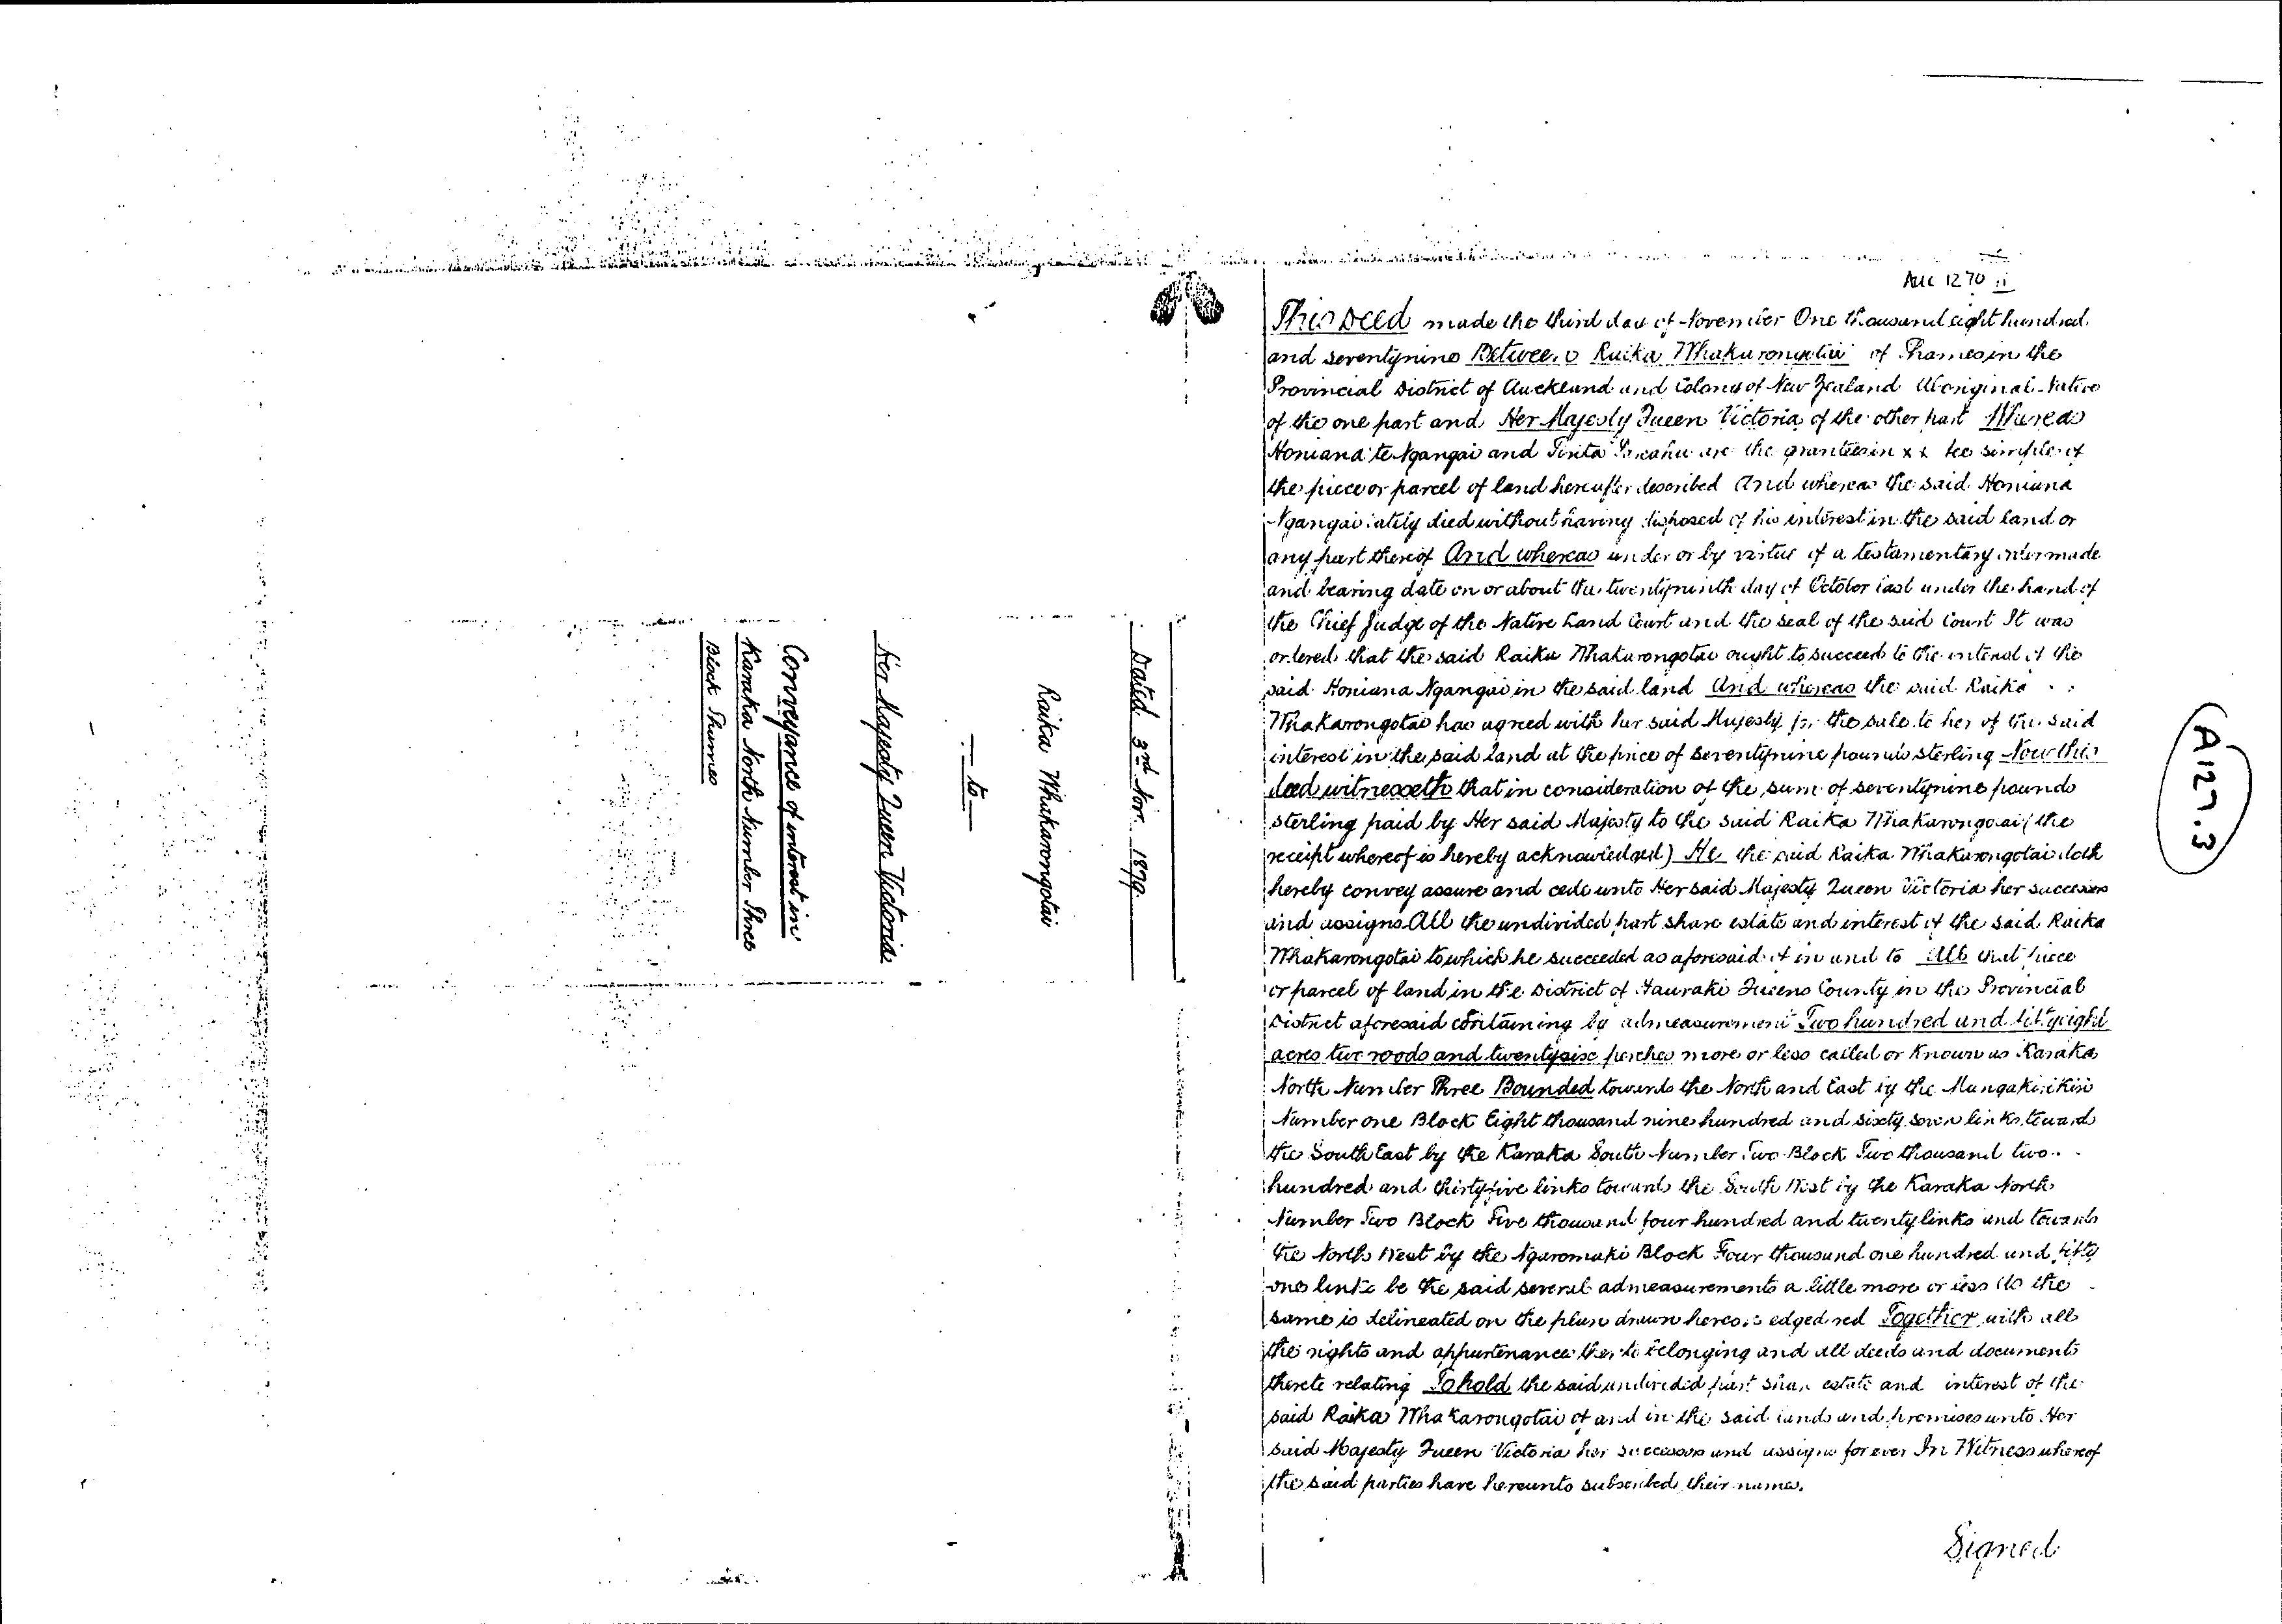 Dated 3rd Nov. 1879.
Raika Whakarongotai
— to —
Her Majesty Queen Victoria
Conveyance of interest in
Karaka North Number Three
Block Thames
Auc 1270
This Deed made the third day of November One thousand eight hundred
and seventynine Between Raika Whakarongotai of Thames in the
Provincial District of Auckland and Colony of New Zealand Aboriginal Native
of the one part and Her Majesty Queen Victoria of the other part Whereas
Honiana te Ngangai and Pirita are the grantees in x x fee simple of
the piece or parcel of land hereafter described And whereas the said Honiana
Ngangai lately died without having disposed of his interest in the said land or
any part thereof And whereas under or by virtue of a testamentary order made
and bearing date on or about the twentyninth day of October last under the hand of
the Chief Judge of the Native Land Court and the seal of the said Court It was
ordered that the said Raika Whakarongotai ought to succeed to the interest of the
said Honiana Ngangai in the said land And whereas the said Raika
Whakarongotai has agreed with her said Majesty for the sale to her of the said
interest in the said land at the price of seventynine pounds sterling Now this
deed witnesseth that in consideration of the sum of seventynine pounds
sterling paid by Her said Majesty to the said Raika Whakarongotai (the
receipt whereof is hereby acknowledged) He the said Raika Whakarongotai doth
hereby convey assure and cede unto Her said Majesty Queen Victoria her successors
and assigns All the undivided part share estate and interest of the said Raika
Whakarongotai to which he succeeded as aforesaid of in and to All that piece
or parcel of land in the District of Hauraki Queens County in the Provincial
District aforesaid containing by admeasurement Two hundred and fiftyeight
acres two roods and twentysix perches more or less called or known as Karaka
North Number Three Bounded towards the North and East by the Mangakirikiri
Number one Block Eight thousand nine hundred and sixty seven links toward
the South East by the Karaka South Number Two Block Two thousand two
hundred and thirtyfive links towards the South West by the Karaka North
Number Two Block Five thousand four hundred and twenty links and towards
the North West by the Ngaromaki Block Four thousand one hundred and fifty
one links be the said several admeasurements a little more or less As the
same is delineated on the plan drawn hereon edged red Together with all
the rights and appurtenances thereto belonging and all deeds and documents
thereto relating To hold the said undivided part share estate and interest of the
said Raika Whakarongotai of and in the said lands and premises unto Her
said Majesty Queen Victoria her successors and assigns for ever In Witness whereof
the said parties have hereunto subscribed their names.
Signed
A127.3